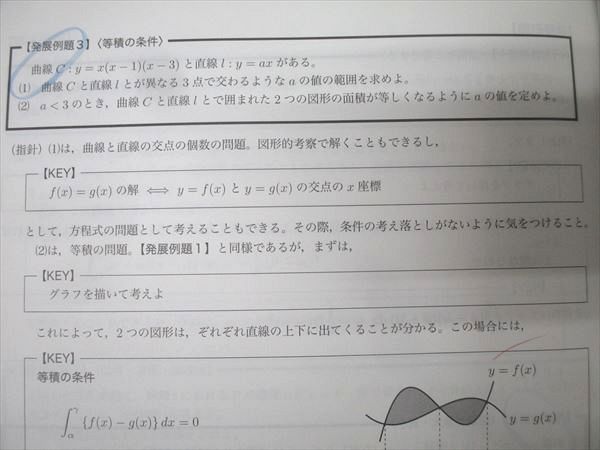 【発展例題3】〈等積の条件〉
曲線 C : y = x(x − 1)(x − 3) と直線 l : y = ax がある。
(1) 曲線 C と直線 l とが異なる3点で交わるような a の値の範囲を求めよ。
(2) a < 3 のとき，曲線 C と直線 l とで囲まれた2つの図形の面積が等しくなるように a の値を定めよ。
(指針) (1)は，曲線と直線の交点の個数の問題。図形的考察で解くこともできるし，
【KEY】
f(x) = g(x) の解 ⟺ y = f(x) と y = g(x) の交点の x 座標
として，方程式の問題として考えることもできる。その際，条件の考え落としがないように気をつけること。
(2)は，等積の問題。【発展例題1】と同様であるが，まずは，
【KEY】
グラフを描いて考えよ
これによって，2つの図形は，ぞれぞれ直線の上下に出てくることが分かる。この場合には，
【KEY】
等積の条件
y = f(x)
∫_α^γ {f(x) − g(x)} dx = 0
y = g(x)